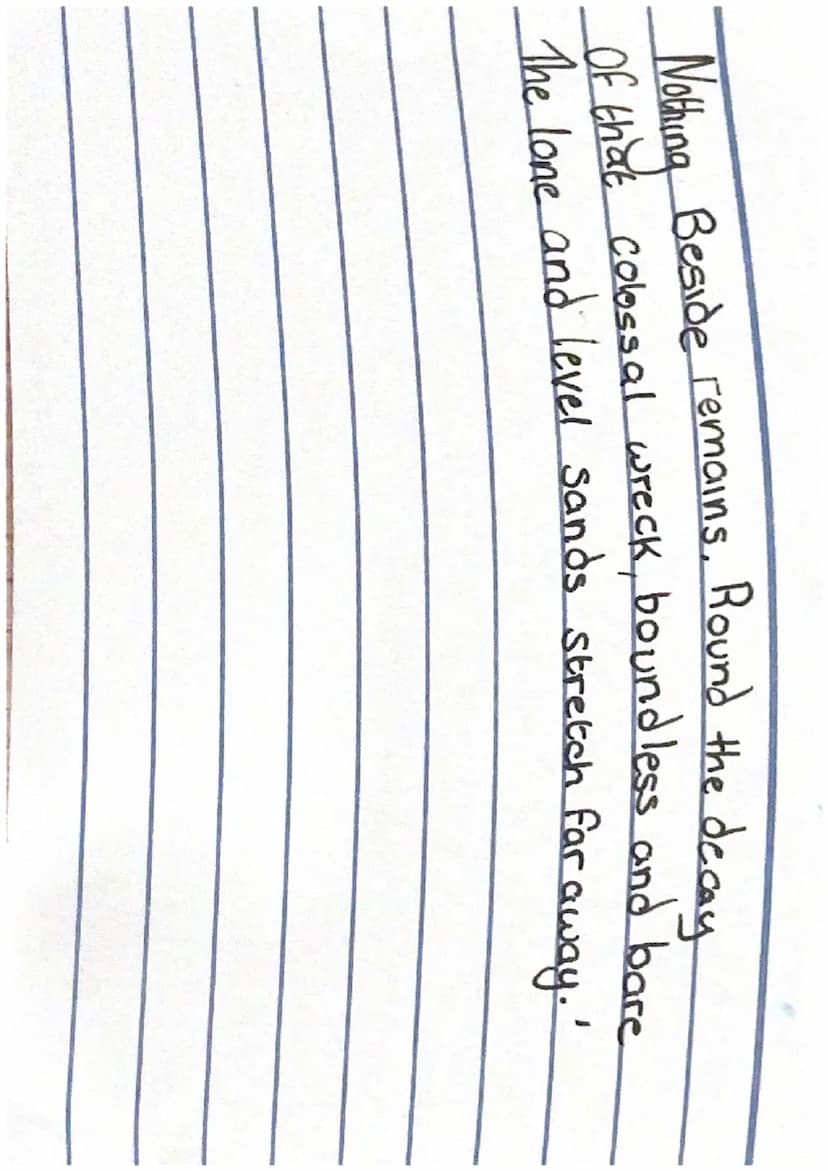 Nothing Beside remains. Round the decay
Of that colossal wreck, boundless and bare
The lone and level sands stretch far away.'